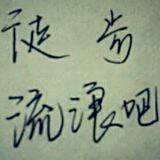 徒步
流浪吧